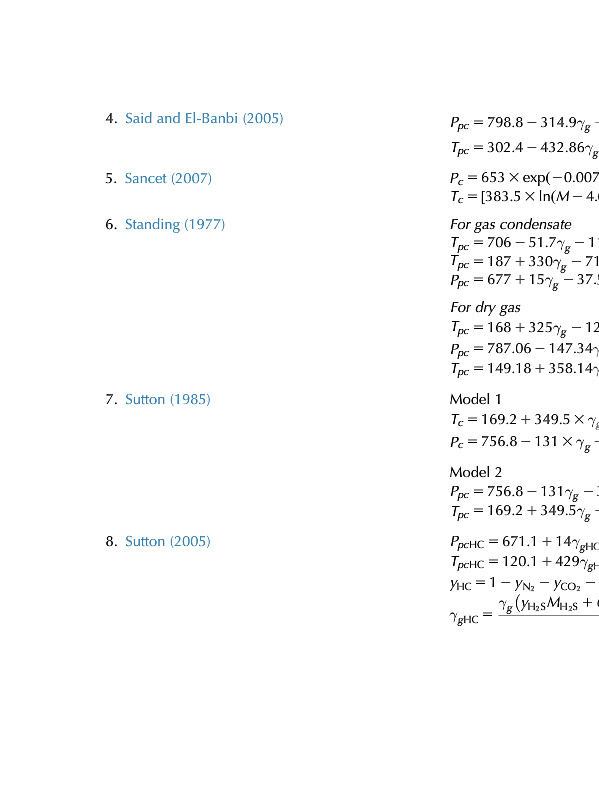 4. Said and El-Banbi (2005)
Ppc = 798.8 − 314.9γg −
Tpc = 302.4 − 432.86γg
5. Sancet (2007)
Pc = 653 × exp(−0.007
Tc = [383.5 × ln(M − 4.
6. Standing (1977)
For gas condensate
Tpc = 706 − 51.7γg − 11
Tpc = 187 + 330γg − 71
Ppc = 677 + 15γg − 37.
For dry gas
Tpc = 168 + 325γg − 12
Ppc = 787.06 − 147.34γ
Tpc = 149.18 + 358.14γ
7. Sutton (1985)
Model 1
Tc = 169.2 + 349.5 × γg
Pc = 756.8 − 131 × γg −
Model 2
Ppc = 756.8 − 131γg −
Tpc = 169.2 + 349.5γg −
8. Sutton (2005)
PpcHC = 671.1 + 14γgHC
TpcHC = 120.1 + 429γgH
yHC = 1 − yN₂ − yCO₂ −
γgHC = γg(yH₂SMH₂S +